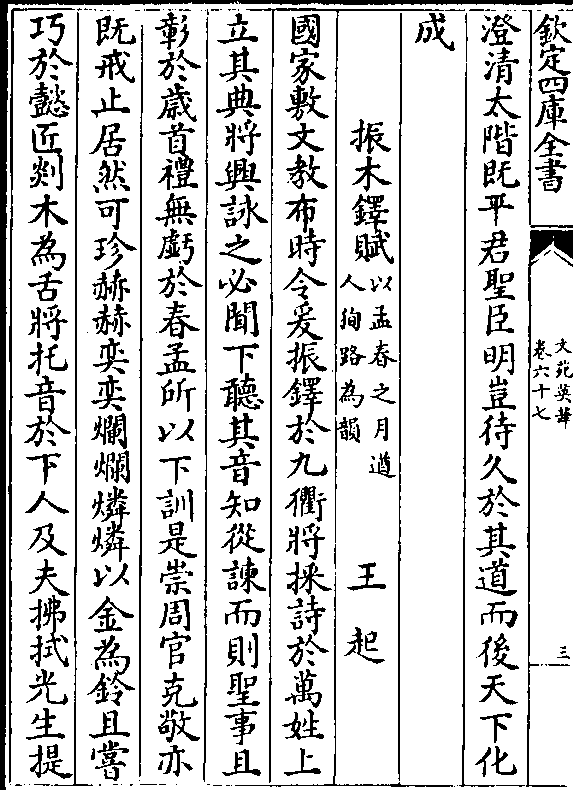 欽定四庫全書
文苑英華
卷六十七
三
澄清太階既平君聖臣明豈待久於其道而後天下化
成
振木鐸賦以孟春之月遒人狥路為韻 王起
國家敷文教布時令爰振鐸於九衢將採詩於萬姓上
立其典將興詠之必聞下聽其音知從諫而則聖事且
彰於歳首禮無虧於春孟所以下訓是崇周官克敬亦
既戒止居然可珍赫赫奕奕爛爛燐燐以金為鈴且嘗
巧於懿匠剡木為舌將托音於下人及夫拂拭光生提